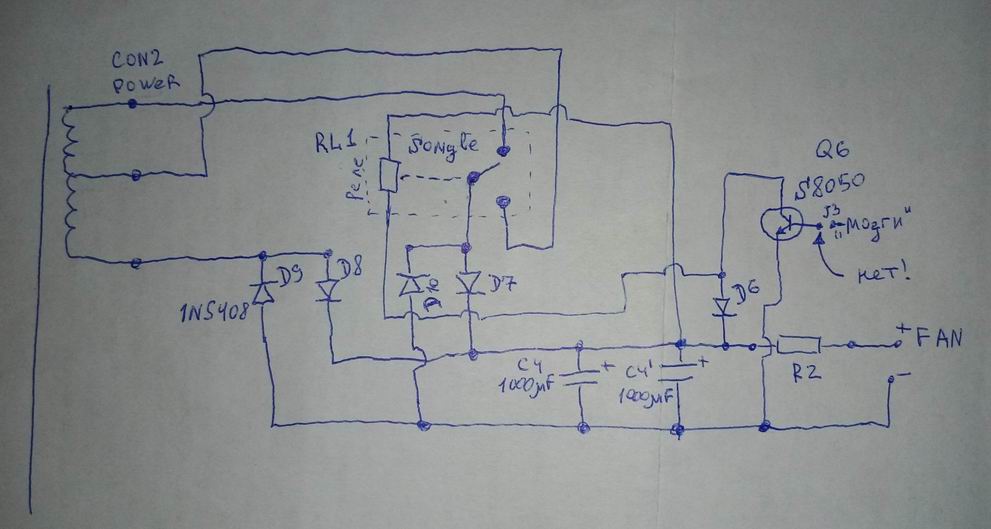 CON2
POWER
RL1
Songle
Реле
Q6
S8050
J3
"Мозги"
нет!
D9
D8
1N5408
D7
D6
+ FAN
-
R2
C4
1000μF
+
C4'
1000μF
+